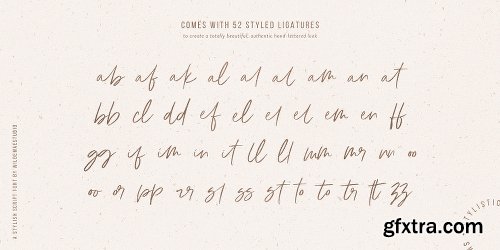 COMES WITH 52 STYLED LIGATURES
to create a totally beautiful, authentic hand-lettered look
ab af ak al al al am an at
bb cl dd ef el el el em en ff
gg if im in it ll ll mm mr nn oo
oo or pp rr sl ss st to to tr tt zz
A STYLISH SCRIPT FONT BY
STYLISTIC
gfxtra.com